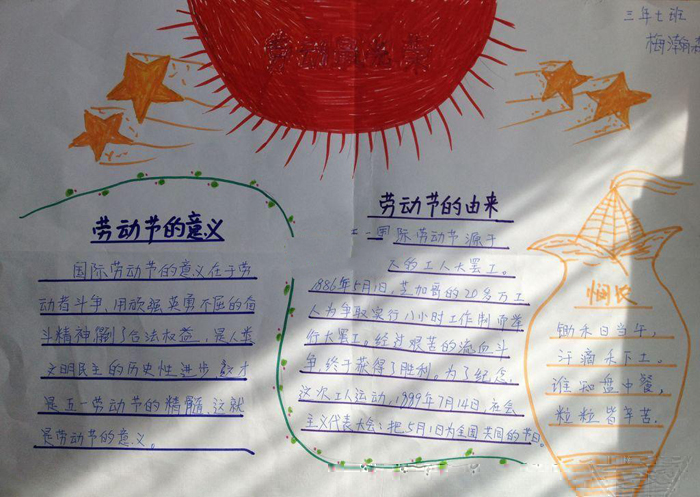 三年七班
梅瀚
劳动最光荣
劳动节的意义
国际劳动节的意义在于劳
动者斗争,用顽强英勇不屈的奋
斗精神
了合法权益,是人类
文明民主的历史性进步,这才
是五一劳动节的精髓,这就
是劳动节的意义。
劳动节的由来
五一国际劳动节源于
的工人大罢工。
1886年5月1日,芝加哥的20多万工
人为争取实行八小时工作制而举
行大罢工,经过艰苦的流血斗
争,终于获得了胜利。为了纪念
这次工人运动,1999年7月14日,社会
主义代表大会:把5月1日为全国共同的节日。
悯农
锄禾日当午,
汗滴禾下土。
谁知盘中餐,
粒粒皆辛苦.